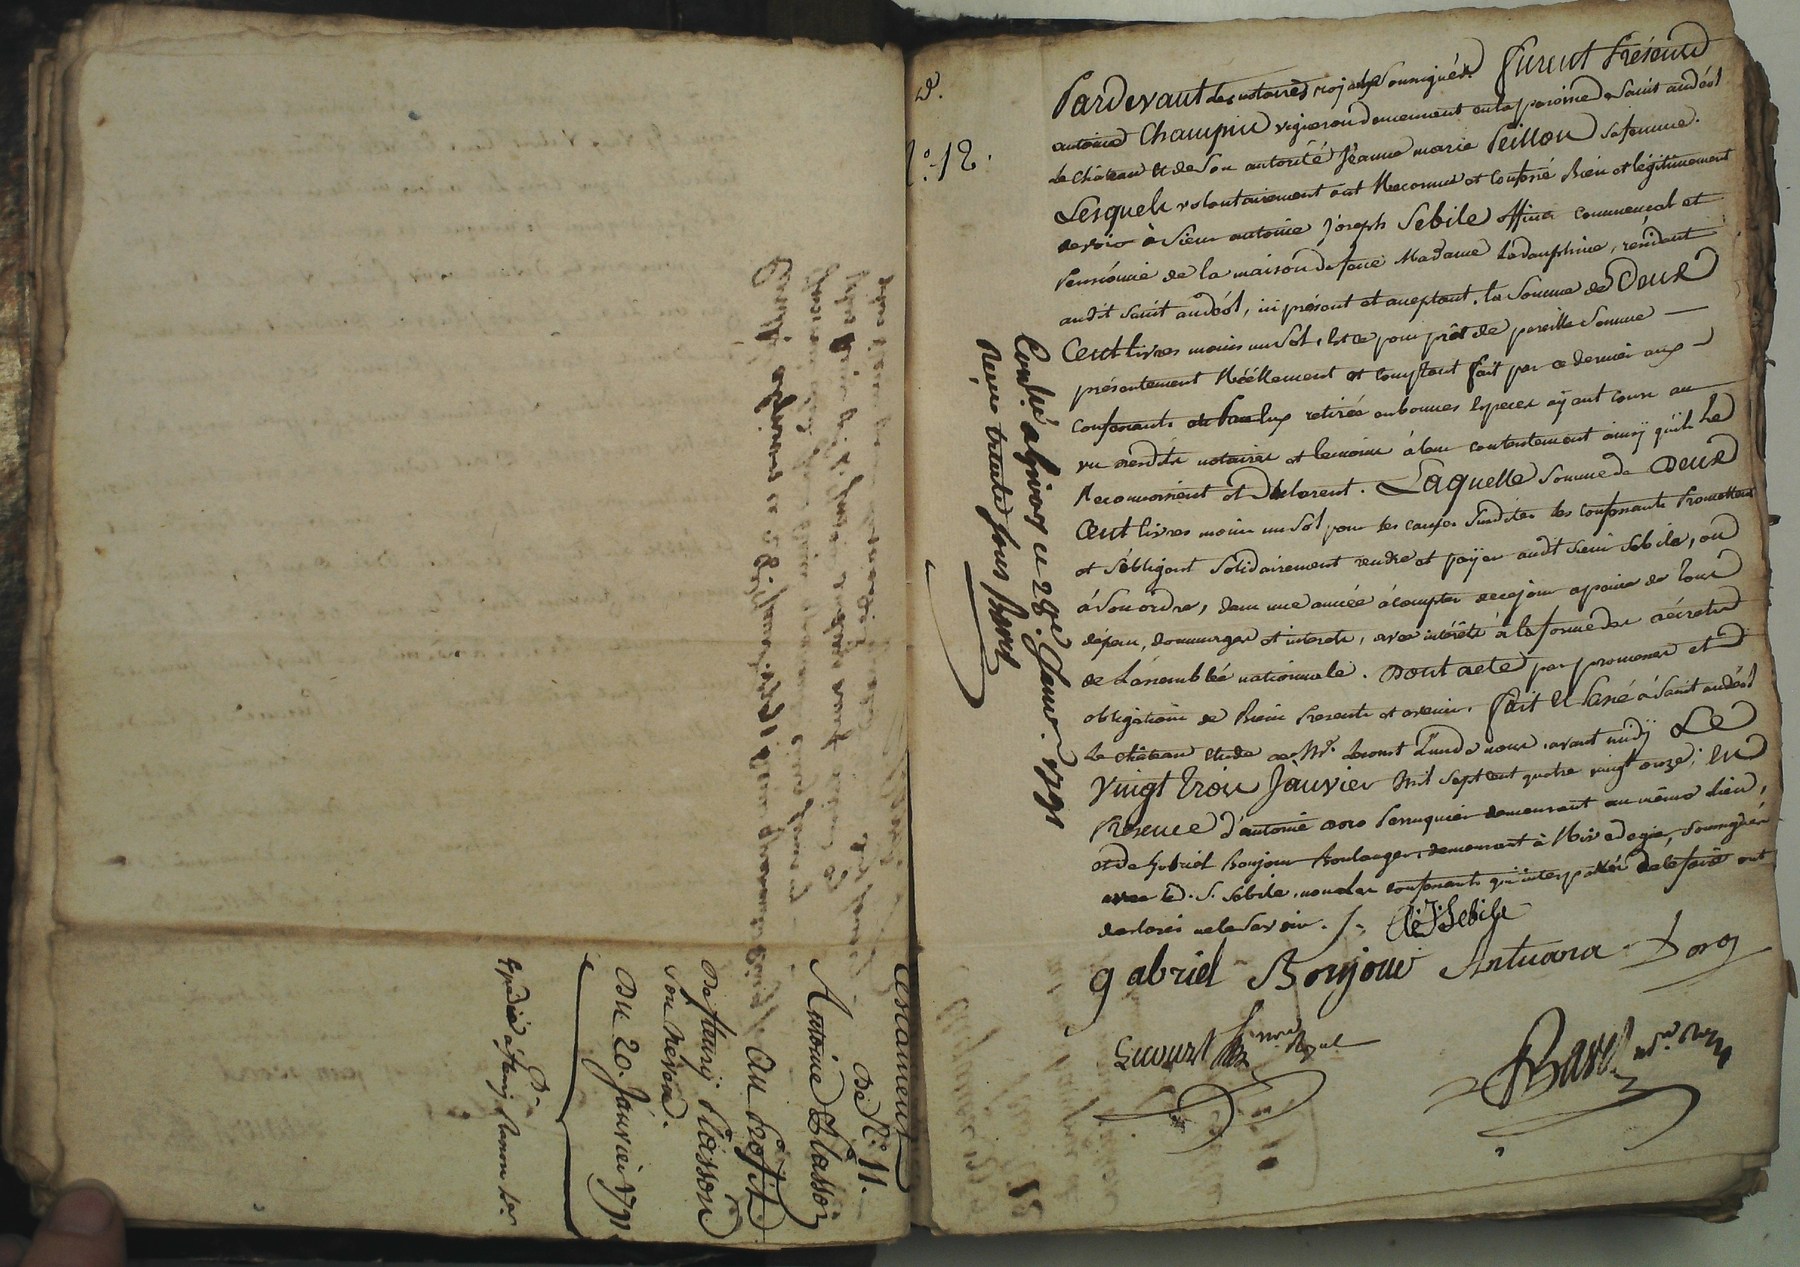 Testament
De N.º 11.
Antoine Plasson
Au Profit
De fleury Plasson
Son Neveu.
Du 20. Janvier 1791
Expédié à fleury Plasson
N.º 12.
Pardevant les notaires royaux Soussignés. Furent Présents
antoine Champin vigneron demeurant en la paroisse de Saint andéol
Le Château et de Son autorité Jeanne marie Peillon sa femme.
Lesquels volontairement ont Reconnu et Confessé Bien et légitimement
devoir à Sieur antoine Joseph Sebile officier commensal et
Pensionné de la maison de feue Madame La dauphine, résident
audit Saint andéol, ici présent et acceptant, la Somme de Deux
Cent livres moins un Sol, Et ce pour prêt de pareille Somme
présentement Réellement et comptant fait par ce dernier aux
Confessants retirée en bonnes Especes ayant cours au
vu desdits notaires et témoins à leur contentement ainsÿ qu'ils Le
Reconnoissent et Déclarent. Laquelle Somme de Deux
Cent livres moins un Sol pour les causes Susdites les confessants Promettent
et S'obligent Solidairement rendre et païer audit Sieur Sebile, ou
à Son ordre, dans une année à compter de ce jour a peine de tous
dépens, dommages et interets, avec intérêts à la forme des décrets
de L'assemblée nationale. Dont acte par promesses et
obligations de Biens Presents et avenir. fait et Passé à Saint andéol
Le Château Etude de Mr. Lecourt L'un de nous, avant midÿ Le
Vingt Trois Janvier Mil Sept cent quatre vingt onze; En
Présence d'antoine Doro Perruquier demeurant au même Lieu,
et de Gabriel Bonjour Boulanger, demeurant à Rive de gier, Soussignés
avec le d. S. Sebile, non les confessants qui interpellés de le faire ont
déclaré ne le Savoir.
A: J: Sebile
gabriel Bonjour Antuana Doro
Lecourt nore Royal
Barel
Contlé à givors ce 28e. Janvr. 1791
Reçu trente sous Barel